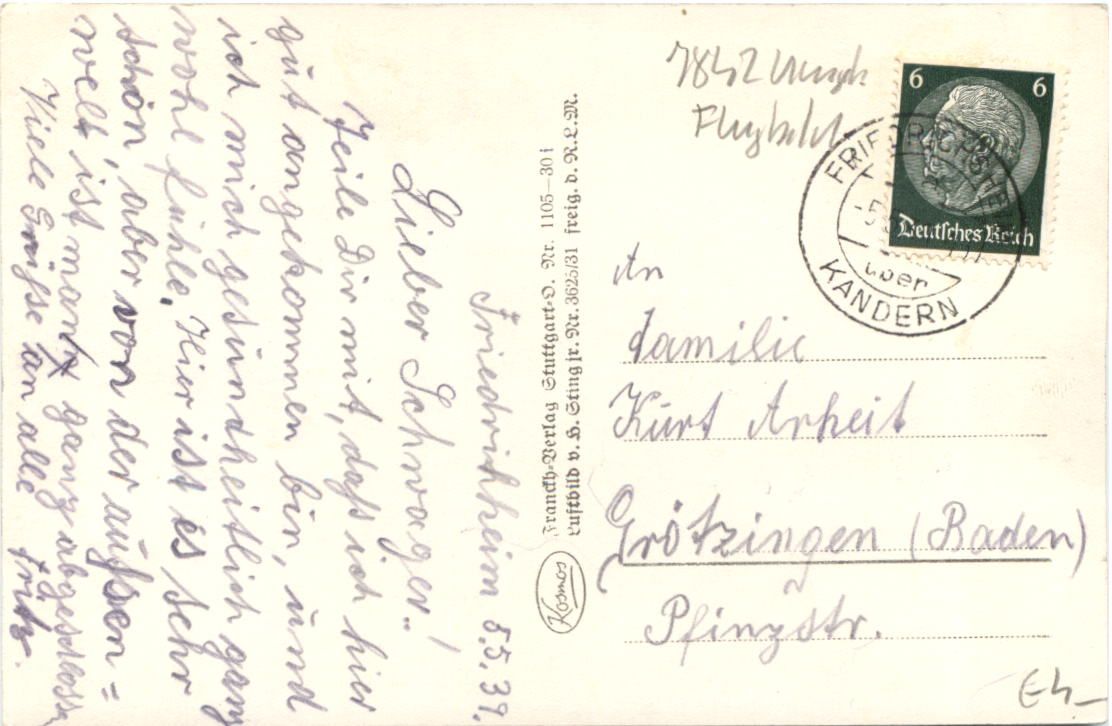 Friedrichheim 5.5.39.
Lieber Schwager!
Teile Dir mit, daß ich hier
gut angekommen bin, und
ich mich gesundheitlich ganz
wohl fühle. Hier ist es sehr
schön, aber von der außen=
welt ist man ganz abgeschlossen
Viele Grüße an alle Fritz.
Kosmos
Franckh-Verlag Stuttgart-O. Nr. 1105-30 i
Luftbild v. H. Sting jr. Nr. 3625/31 freig. d. R.L.M.
Flugbild
6 6
Deutsches Reich
FRIEDRICHSHEIM
über
KANDERN
An
Familie
Kurt Arheit
Grötzingen (Baden)
Pfinzstr.